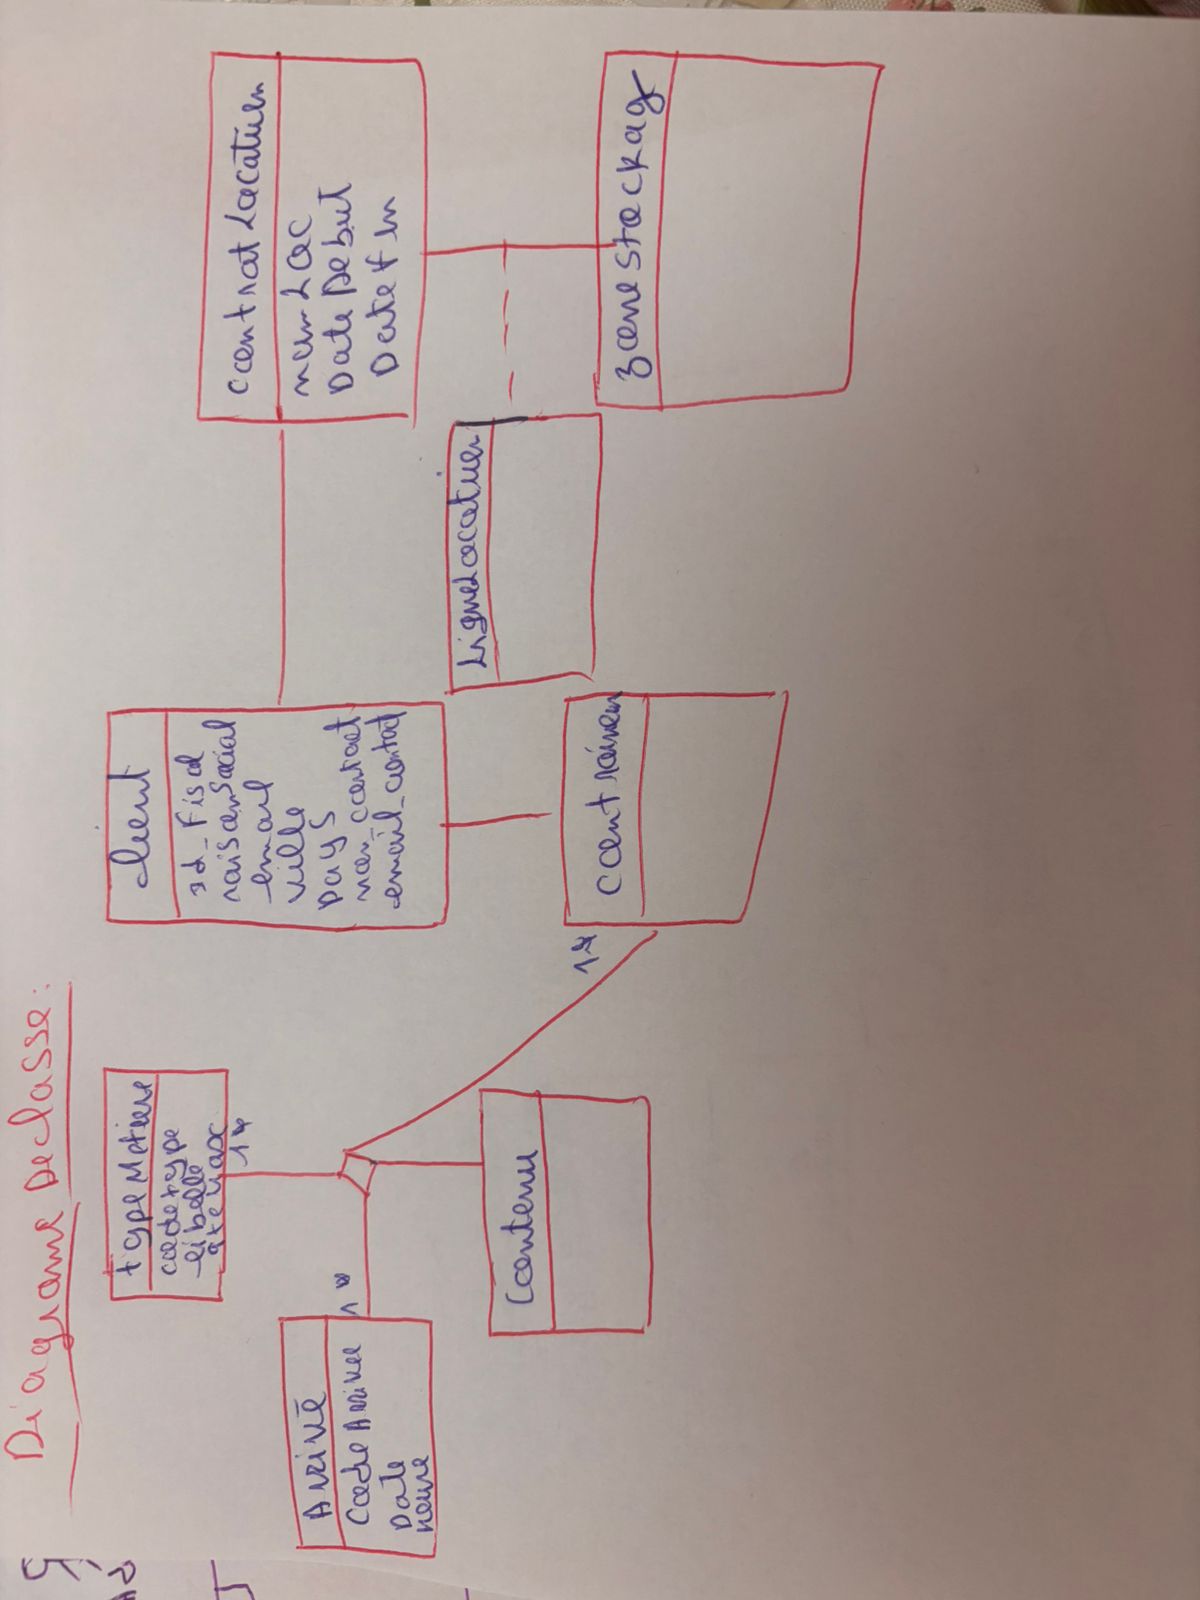 Diagrame De classe:
type Motieu
codetype
libelle
qteMax
1*
Arrivé
Code Arrivee
Date
heure
1*
Contenu
client
id_Fiscal
raison Social
email
ville
pays
nom_contact
email_contact
contrainen
1*
contrat Location
num Loc
Date Debut
Date fin
Ligne Location
zone stockag